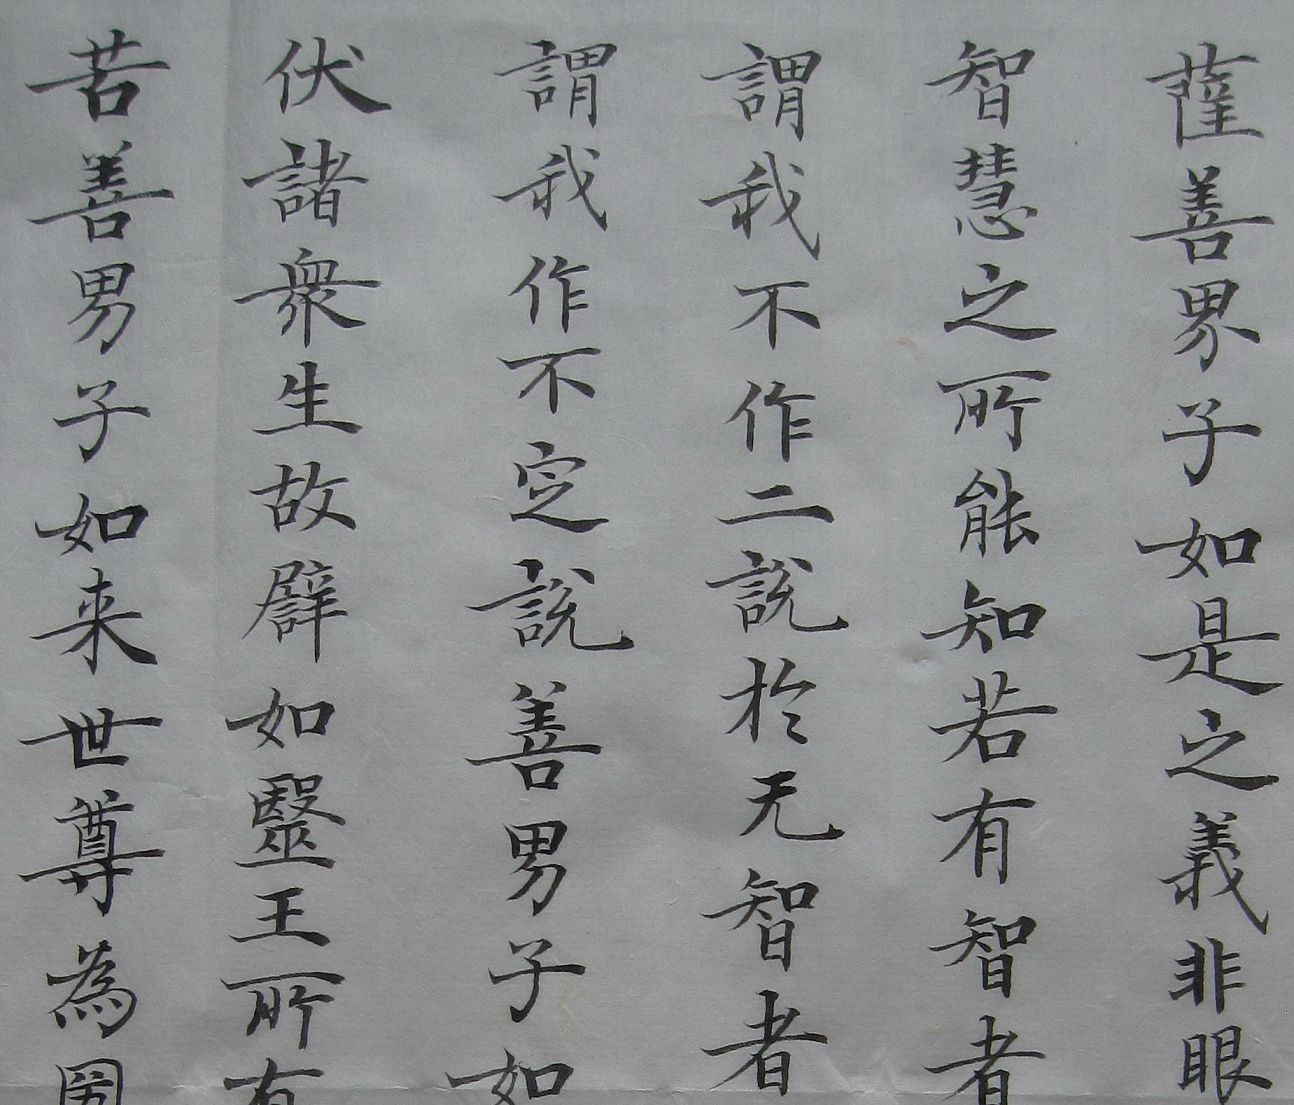 薩善男子如是之義非眼
智慧之所能知若有智者
謂我不作二說於无智者
謂我作不定說善男子如
伏諸衆生故譬如毉王所有
若善男子如来世尊為国